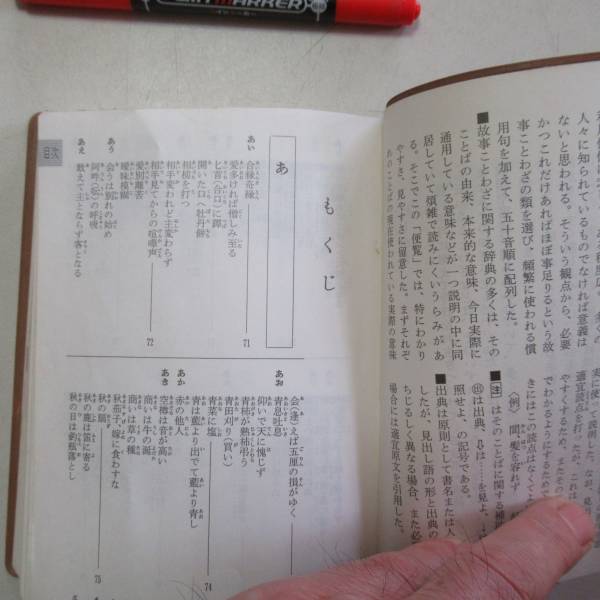 MARKER
人々に知られているものでなければ意義は
ないと思われる。そういう観点から、必要
かつこれだけあればほぼ事足りるという故
事ことわざの類を選び、頻繁に使われる慣
用句を加えて、五十音順に配列した。
■故事ことわざに関する辞典の多くは、その
ことばの由来、本来的な意味、今日実際に
通用している意味などが一つ説明の中に同
居していて煩雑で読みにくいうらみがあ
る。そこでこの「便覧」では、特にわかり
やすさ、見やすさに留意した。まずそれぞ
れのことばの現在使われている実際の意味
実に使って説明した。
やすくするため、
適宜読点を打ったが、これは
でわかるようにするため
きにはこの読点はなくて
〈例〉間、髪を容れず
■注はそのことばに関する補
出は出典、⇩は……を見よ、
照せよ、の記号である。
■出典は原則として書名または人
したが、見出し語の形と出典の
ちじるしく異なる場合、また必
場合には適宜原文を引用した。
もくじ
あ
あい
合縁奇縁 71
愛多ければ憎しみ至る
匕首(合口)に鍔
開いた口へ牡丹餅
相槌を打つ
相手変われど主変わらず
相手見てからの喧嘩声 72
愛別離苦
曖昧模糊
あう
会うは別れの始め
阿吽(呍)の呼吸
あえ
敢えて主とならず客となる
目次
あお
会(逢)えば五厘の損がゆく
青息吐息
仰いで天に愧じず
青柿が熟柿弔う
青田刈り(買い)
青菜に塩
青は藍より出でて藍より青し 74
あか
赤の他人
あき
空樽は音が高い
商いは牛の涎
商いは草の種
秋茄子、嫁に食わすな
秋の扇 75
秋の鹿は笛に寄る
秋の日は釣瓶落とし